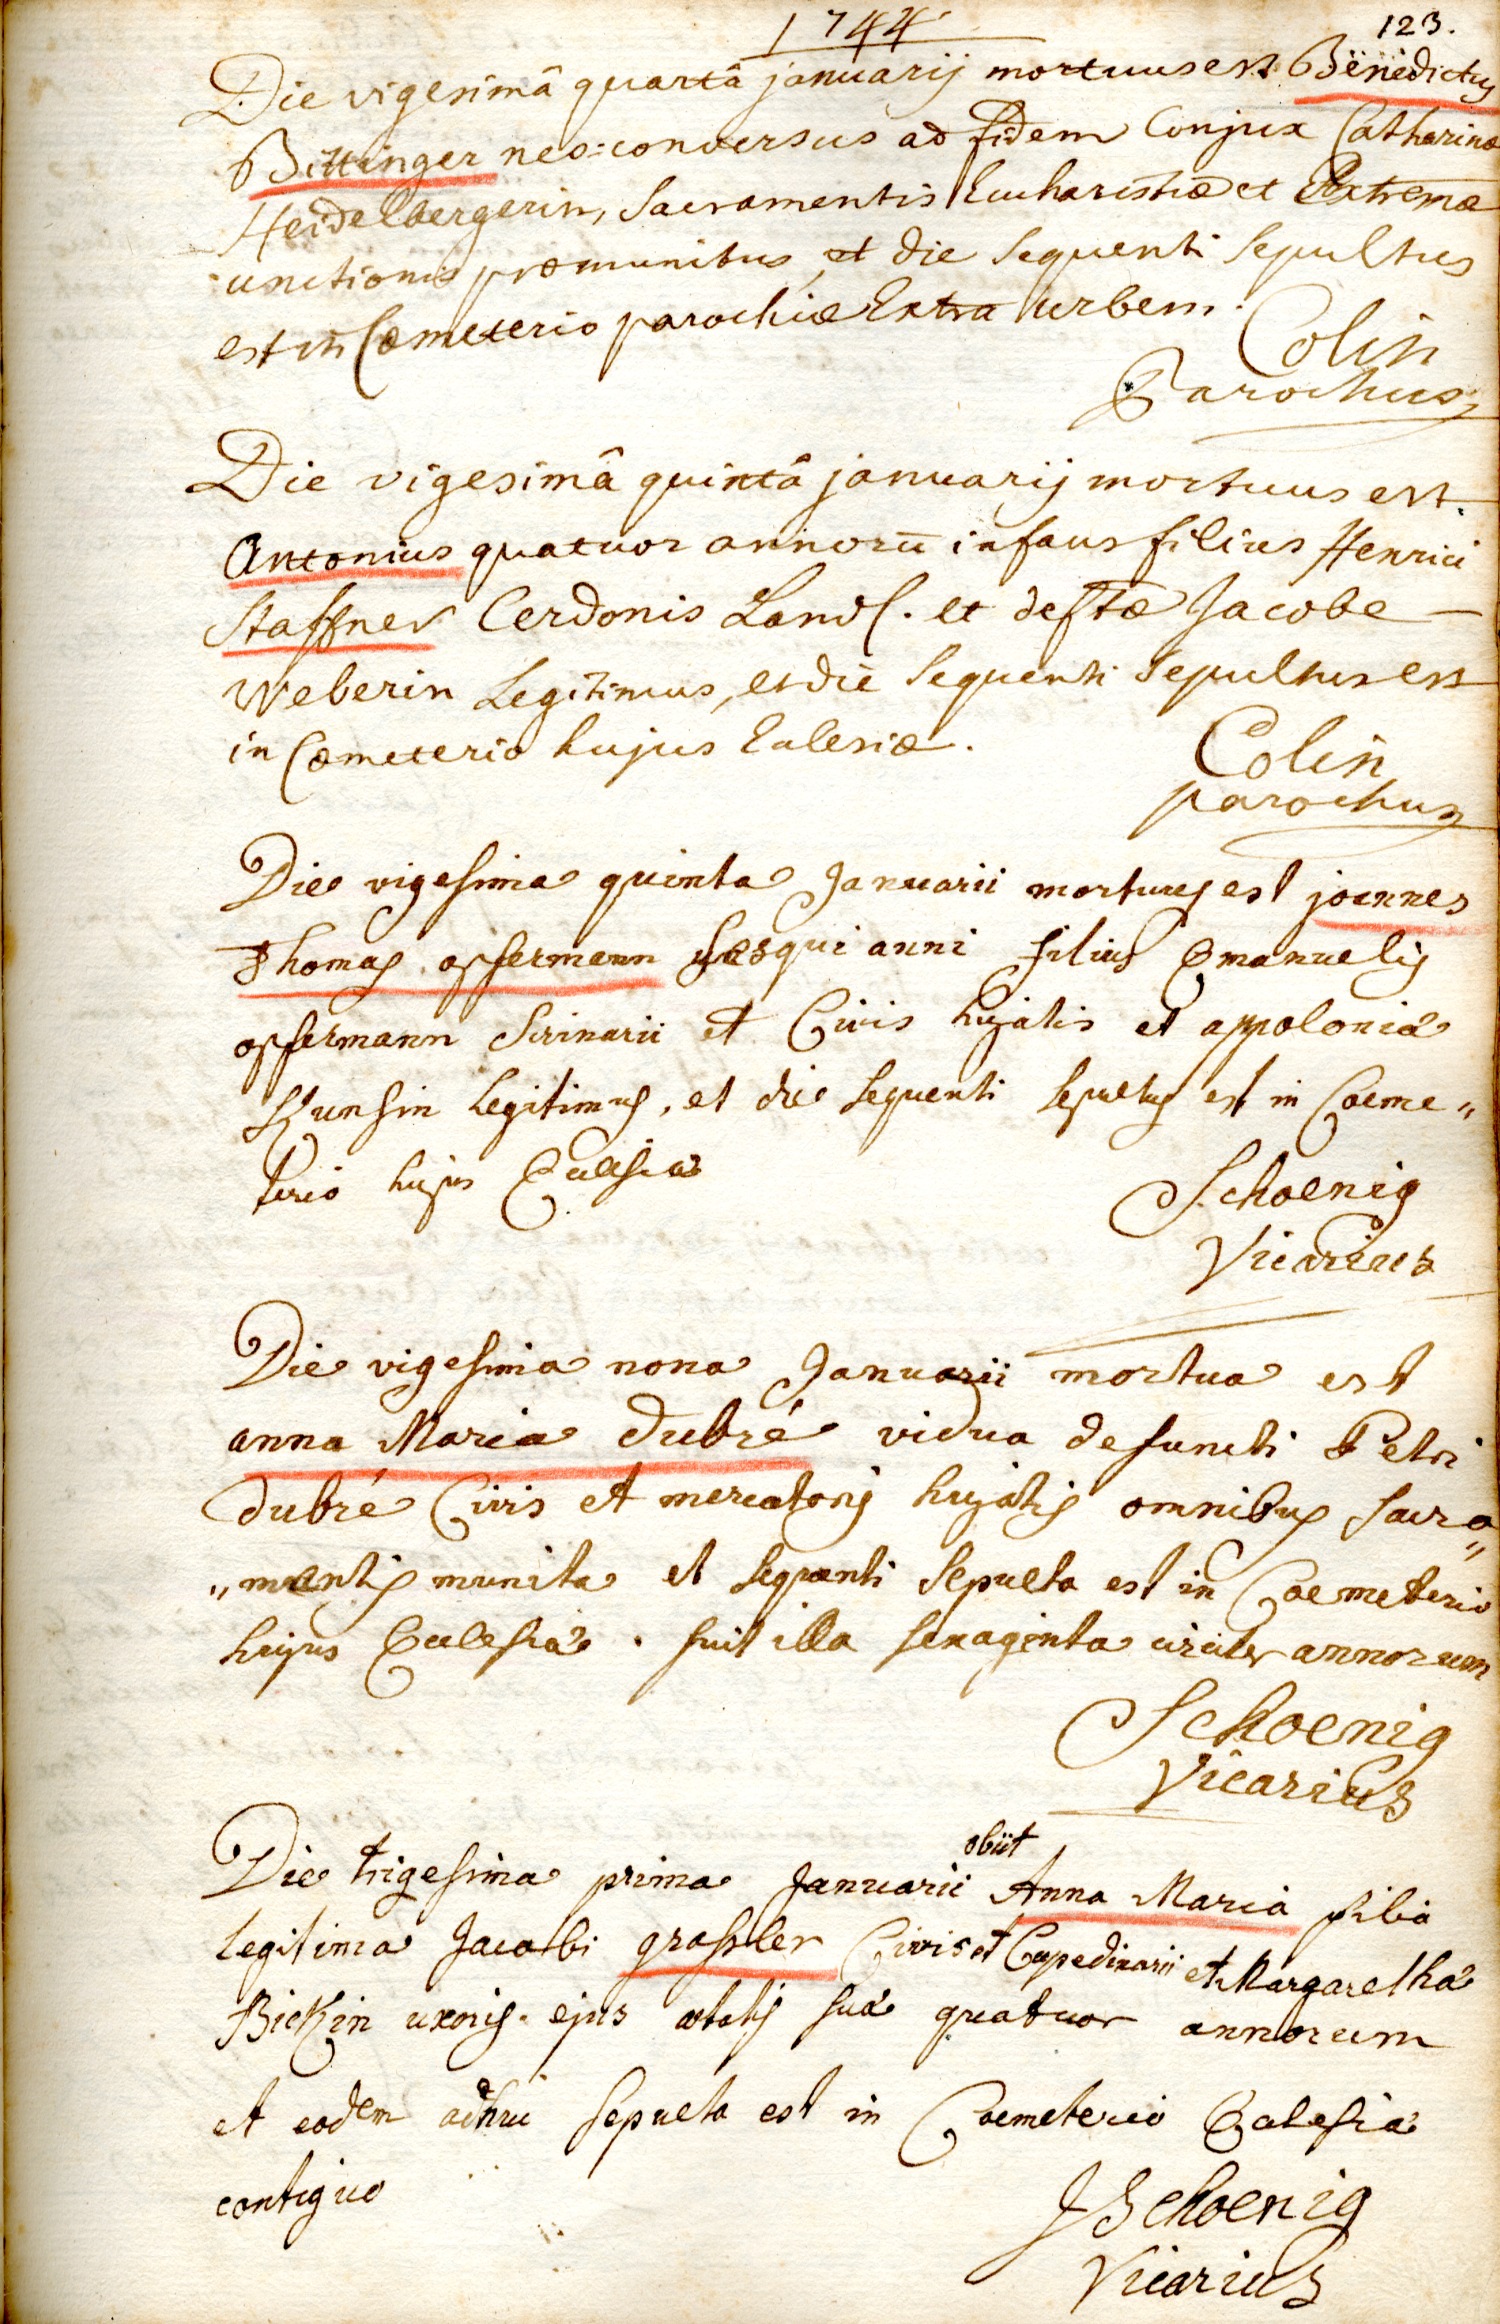 1744
123.
Die vigesimâ quartâ januarij mortuus est Benedictus
Bittinger neo-conversus ad fidem Conjux Catharinæ
Heidelbergerin, Sacramentis Eucharistiæ et Extremæ
unctionis præmunitus, et die sequenti sepultus
est in Cœmeterio parochiæ Extra urbem.
Colin
Parochus
Die vigesimâ quintâ januarij mortuus est.
Antonius quatuor annorū infans filius Henrici
Staffner Cerdonis Landl. et deftæ Jacobe
Weberin Legitimus, et die sequenti sepultus est
in Cœmeterio hujus Eclesiæ.
Colin
parochus
Die vigesima quinta Januarii mortuus est joannes
Thomas opfermann sesqui anni filius Emanuelis
opfermann Scrinarii et Civis hujatis et appoloniæ
Kunsin legitimus, et die sequenti sepultus est in Coeme„
terio hujus Eclesiæ
Schoenig
Vicarius
Die vigesima nona Januarii mortua est
anna Maria dubré vidua defuncti Petri
dubré Civis et mercatoris hujatis omnibus sacra„
„mentis munita et sequenti sepulta est in Coemeterio
hujus Eclesiæ. fuit illa sexaginta circiter annorum
Schoenig
Vicarius
obiit
Die trigesima prima Januarii Anna Maria filia
legitima Jacobi grassler Civis et Cupedinarii et Margarethæ
Bickin uxoris ejus ætatis suæ quatuor annorum
et eodem sepulta est in Coemeterio Eclesiæ
contiguo
J Schoenig
Vicarius